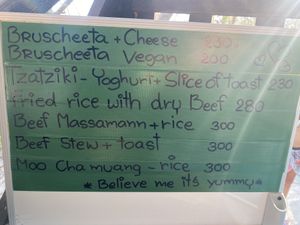 Bruscheeta + Cheese 230
Bruscheeta Vegan 200
Tzatziki - Yoghurt + Slice of toast 230
Fried rice with dry Beef 280
Beef Massamann + rice 300
Beef Stew + toast 300
Moo Chamuang - rice 300
* Believe me it's yummy *